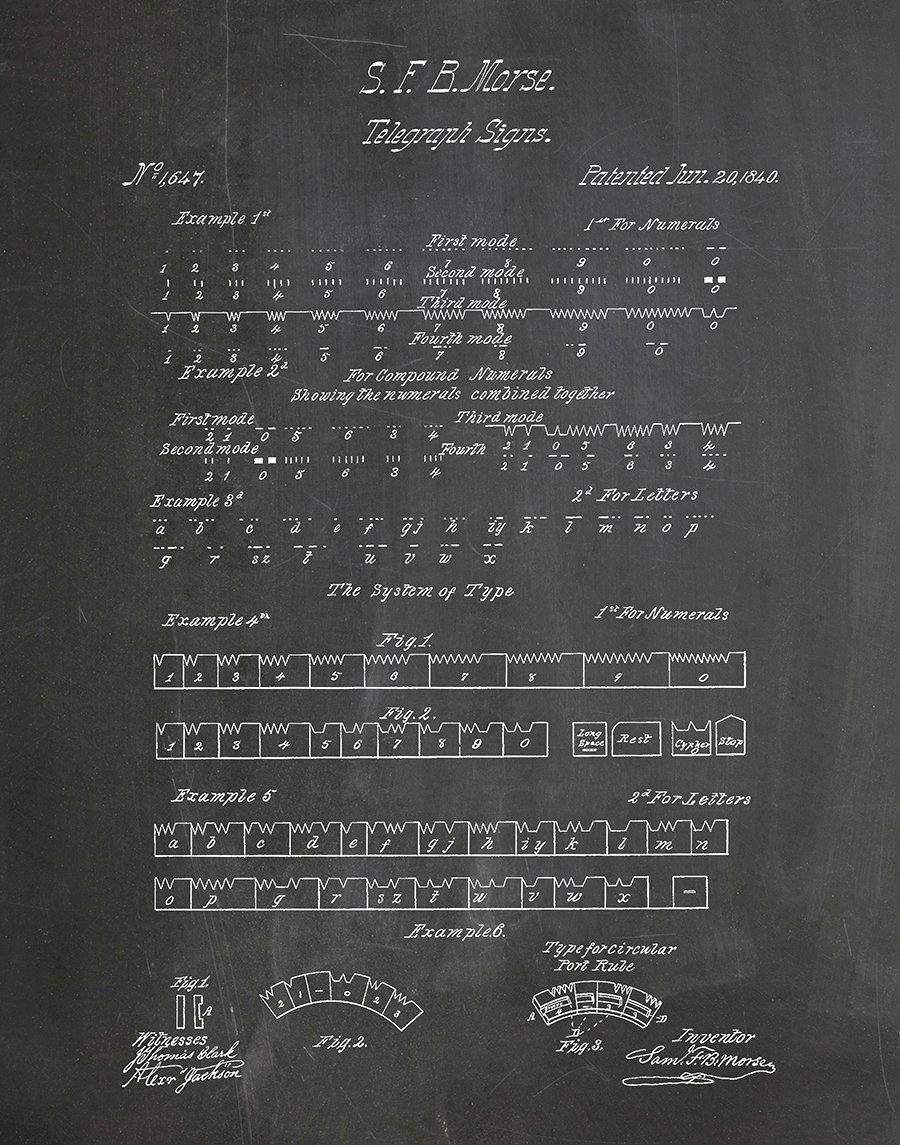 S. F. B. Morse.
Telegraph Signs.
No. 1,647. Patented Jun. 20, 1840.
Example 1st 1st For Numerals
First mode
1 2 3 4 5 6 7 8 9 0 0
Second mode
1 2 3 4 5 6 7 8 9 0 0
Third mode
1 2 3 4 5 6 7 8 9 0 0
Fourth mode
1 2 3 4 5 6 7 8 9 0
Example 2d For Compound Numerals
Showing the numerals combined together
First mode Third mode
2 1 0 5 6 3 4 2 1 0 5 6 3 4
Second mode Fourth
2 1 0 5 6 3 4 2 1 0 5 6 3 4
Example 3d 2d For Letters
a b c d e f gj h iy k l m n o p
q r sz t u v w x
The System of Type
Example 4th 1st For Numerals
Fig. 1.
1 2 3 4 5 6 7 8 9 0
Fig. 2.
1 2 3 4 5 6 7 8 9 0 Long Space Rest Cypher Stop
Example 5 2d For Letters
a b c d e f gj h iy k l m n
o p q r sz t u v w x
Example 6.
Type for circular
Port Rule
Fig 1
A
2 1 0 2 3
Fig. 2.
A D
D
Fig. 3.
Witnesses
Thomas Clark
Alexr Jackson
Inventor
Saml. F. B. Morse